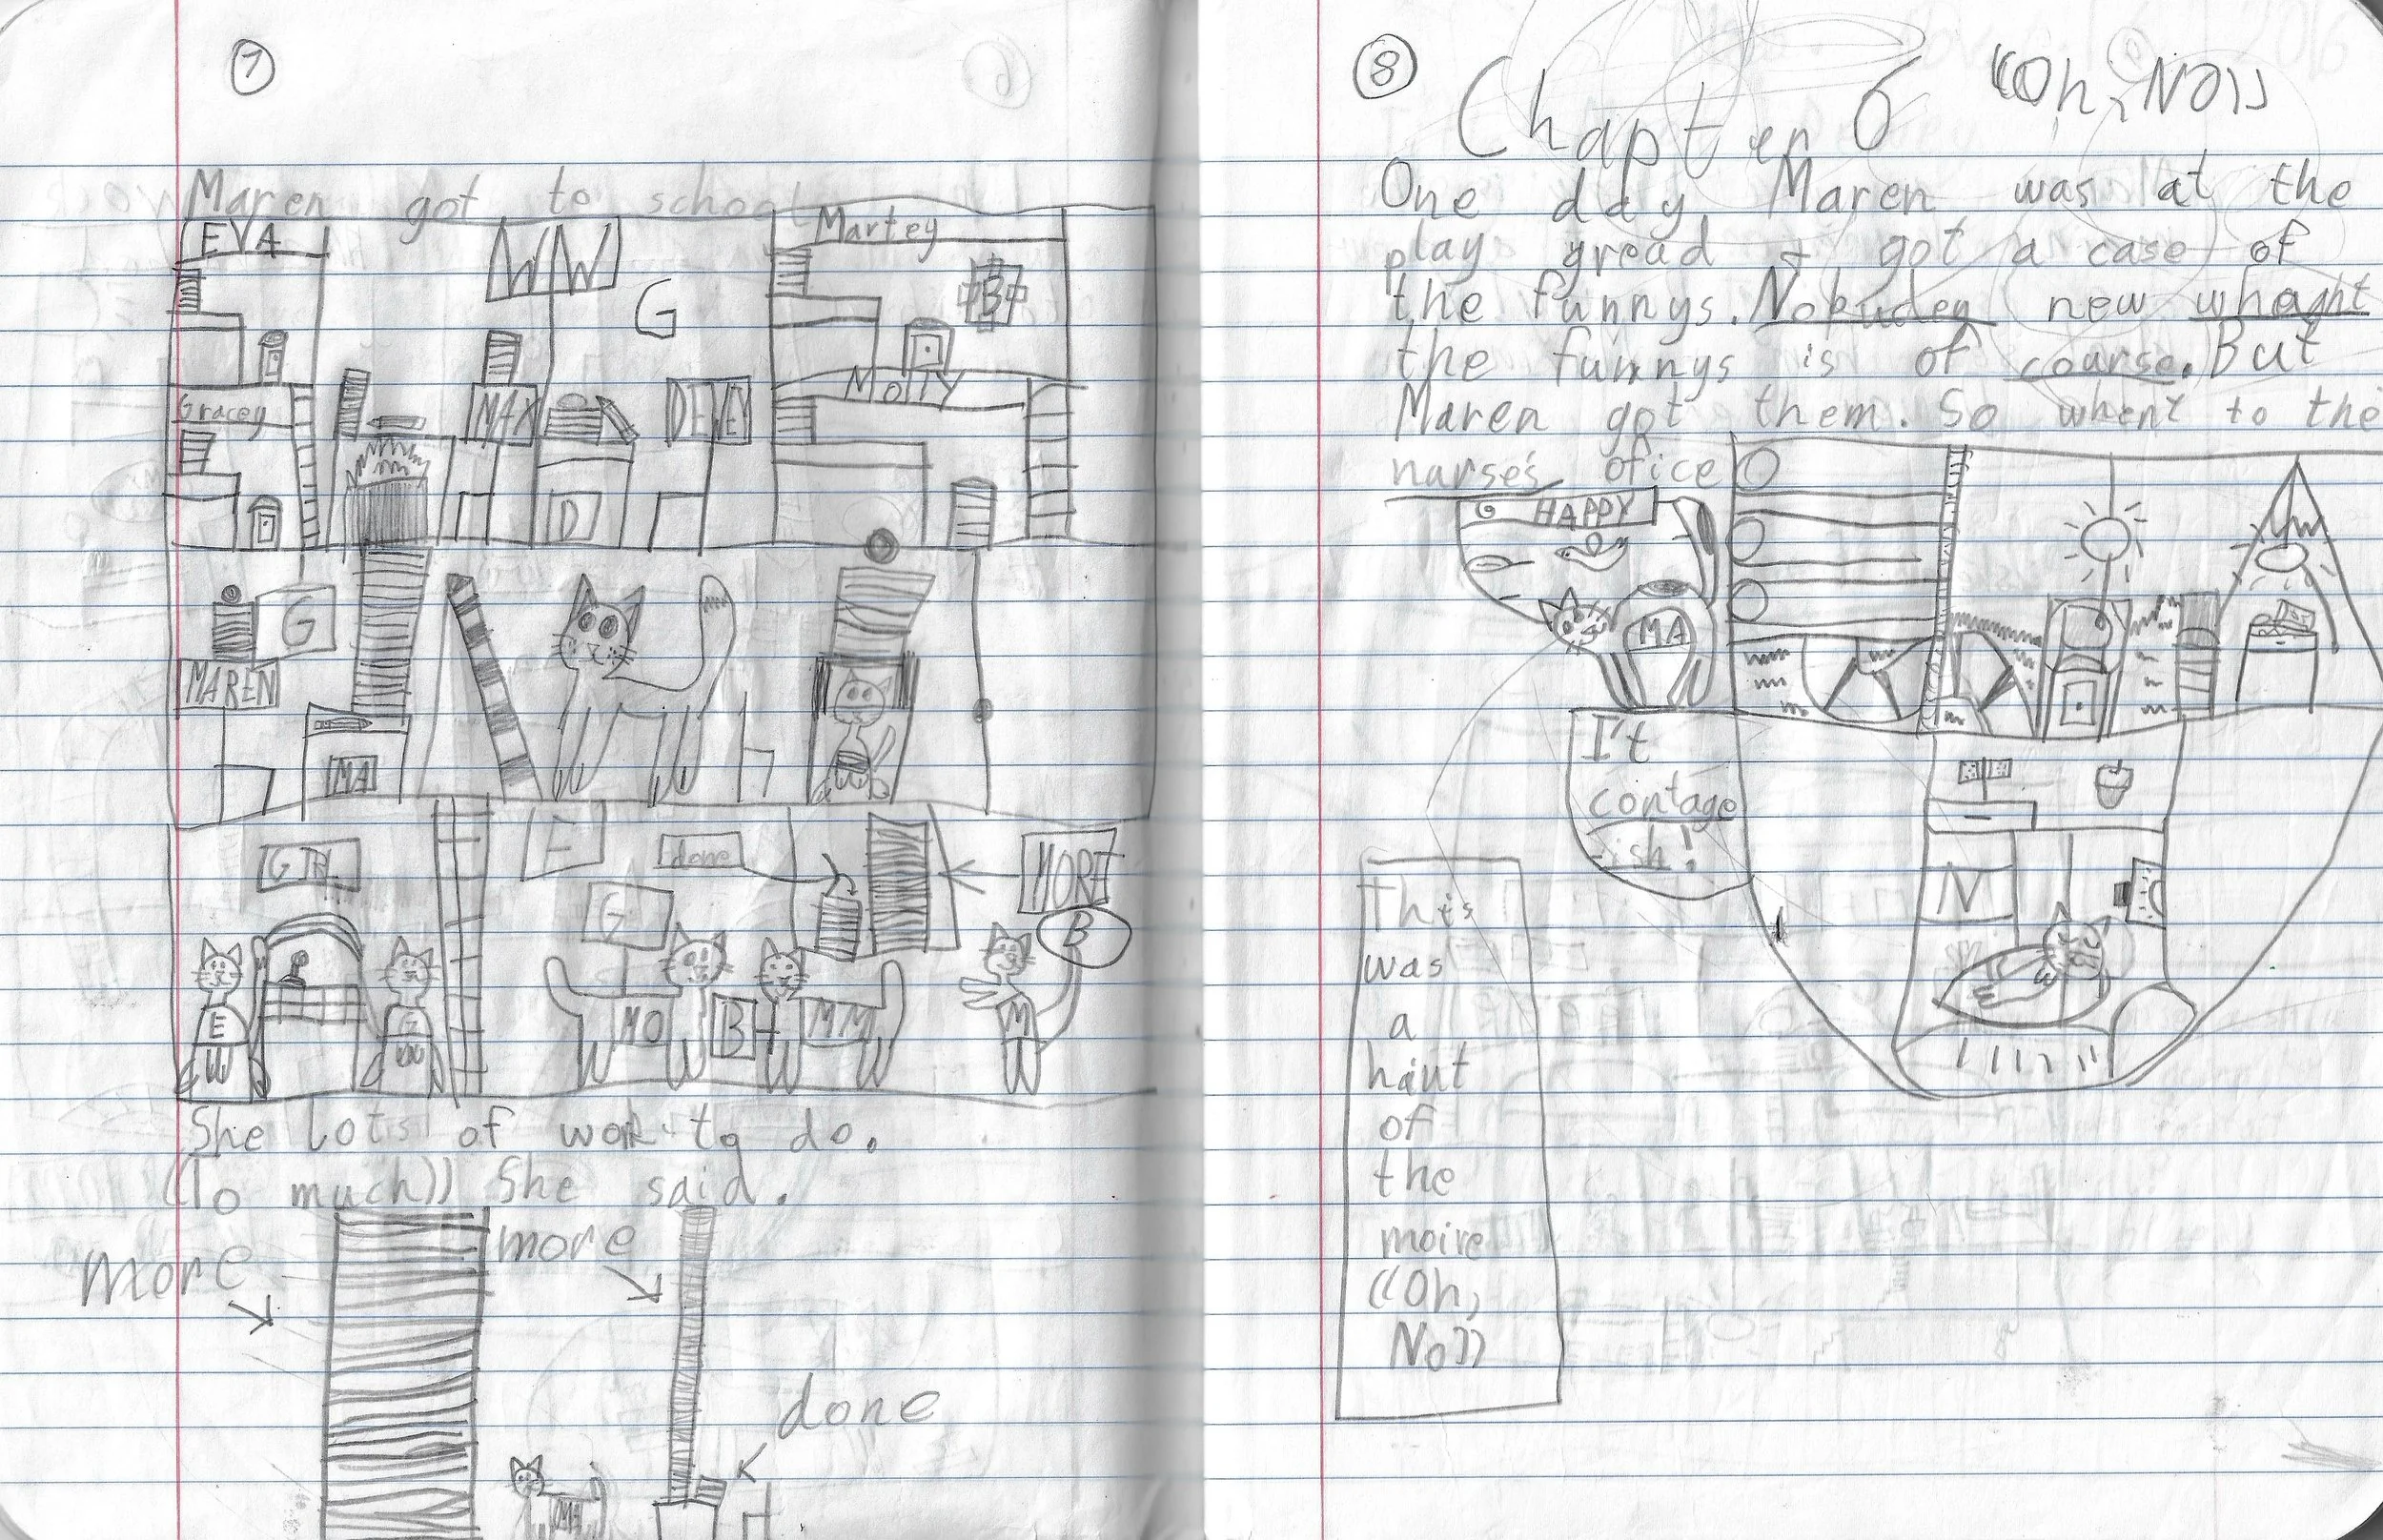 7
Maren got to school
EVA
WW
G
Martey
B
Gracey
MAX
DEWEY
MOllY
D
G
MAREN
MA
F
done
MORE
G
B
E
G
MO
B
MM
M
She lots of work to do.
((To much)) She said.
more
more
done
MA
8
Chapter 6 ((Oh, No))
One day, Maren was at the
play gread + got a case of
the funnys. Nobudey new whaght
the funnys is of coarse. But
Maren got them. So whent to the
narse's ofice
HAPPY
MA
I't
contage
ish!
N
This
was
a
haint
of
the
moire
((Oh,
No))